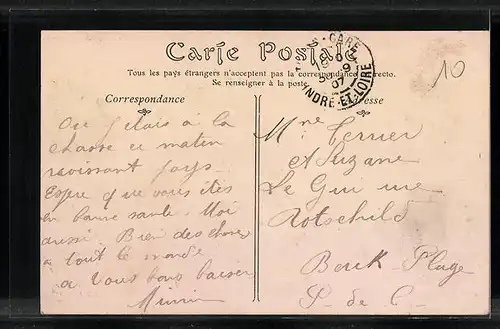 Carte Postale
Tous les pays étrangers n'acceptent pas la correspondance au recto.
Se renseigner à la poste.
Correspondance
Adresse
GARE
07
INDRE-ET-LOIRE
10
à la
chasse ce matin
ravissant pays
Espère que vous êtes
en bonne santé. Moi
aussi. Bien des choses
a tout le monde
a vous bons baiser
Mme
et Suzane
Rotschild
Berck Plage
P. de C.